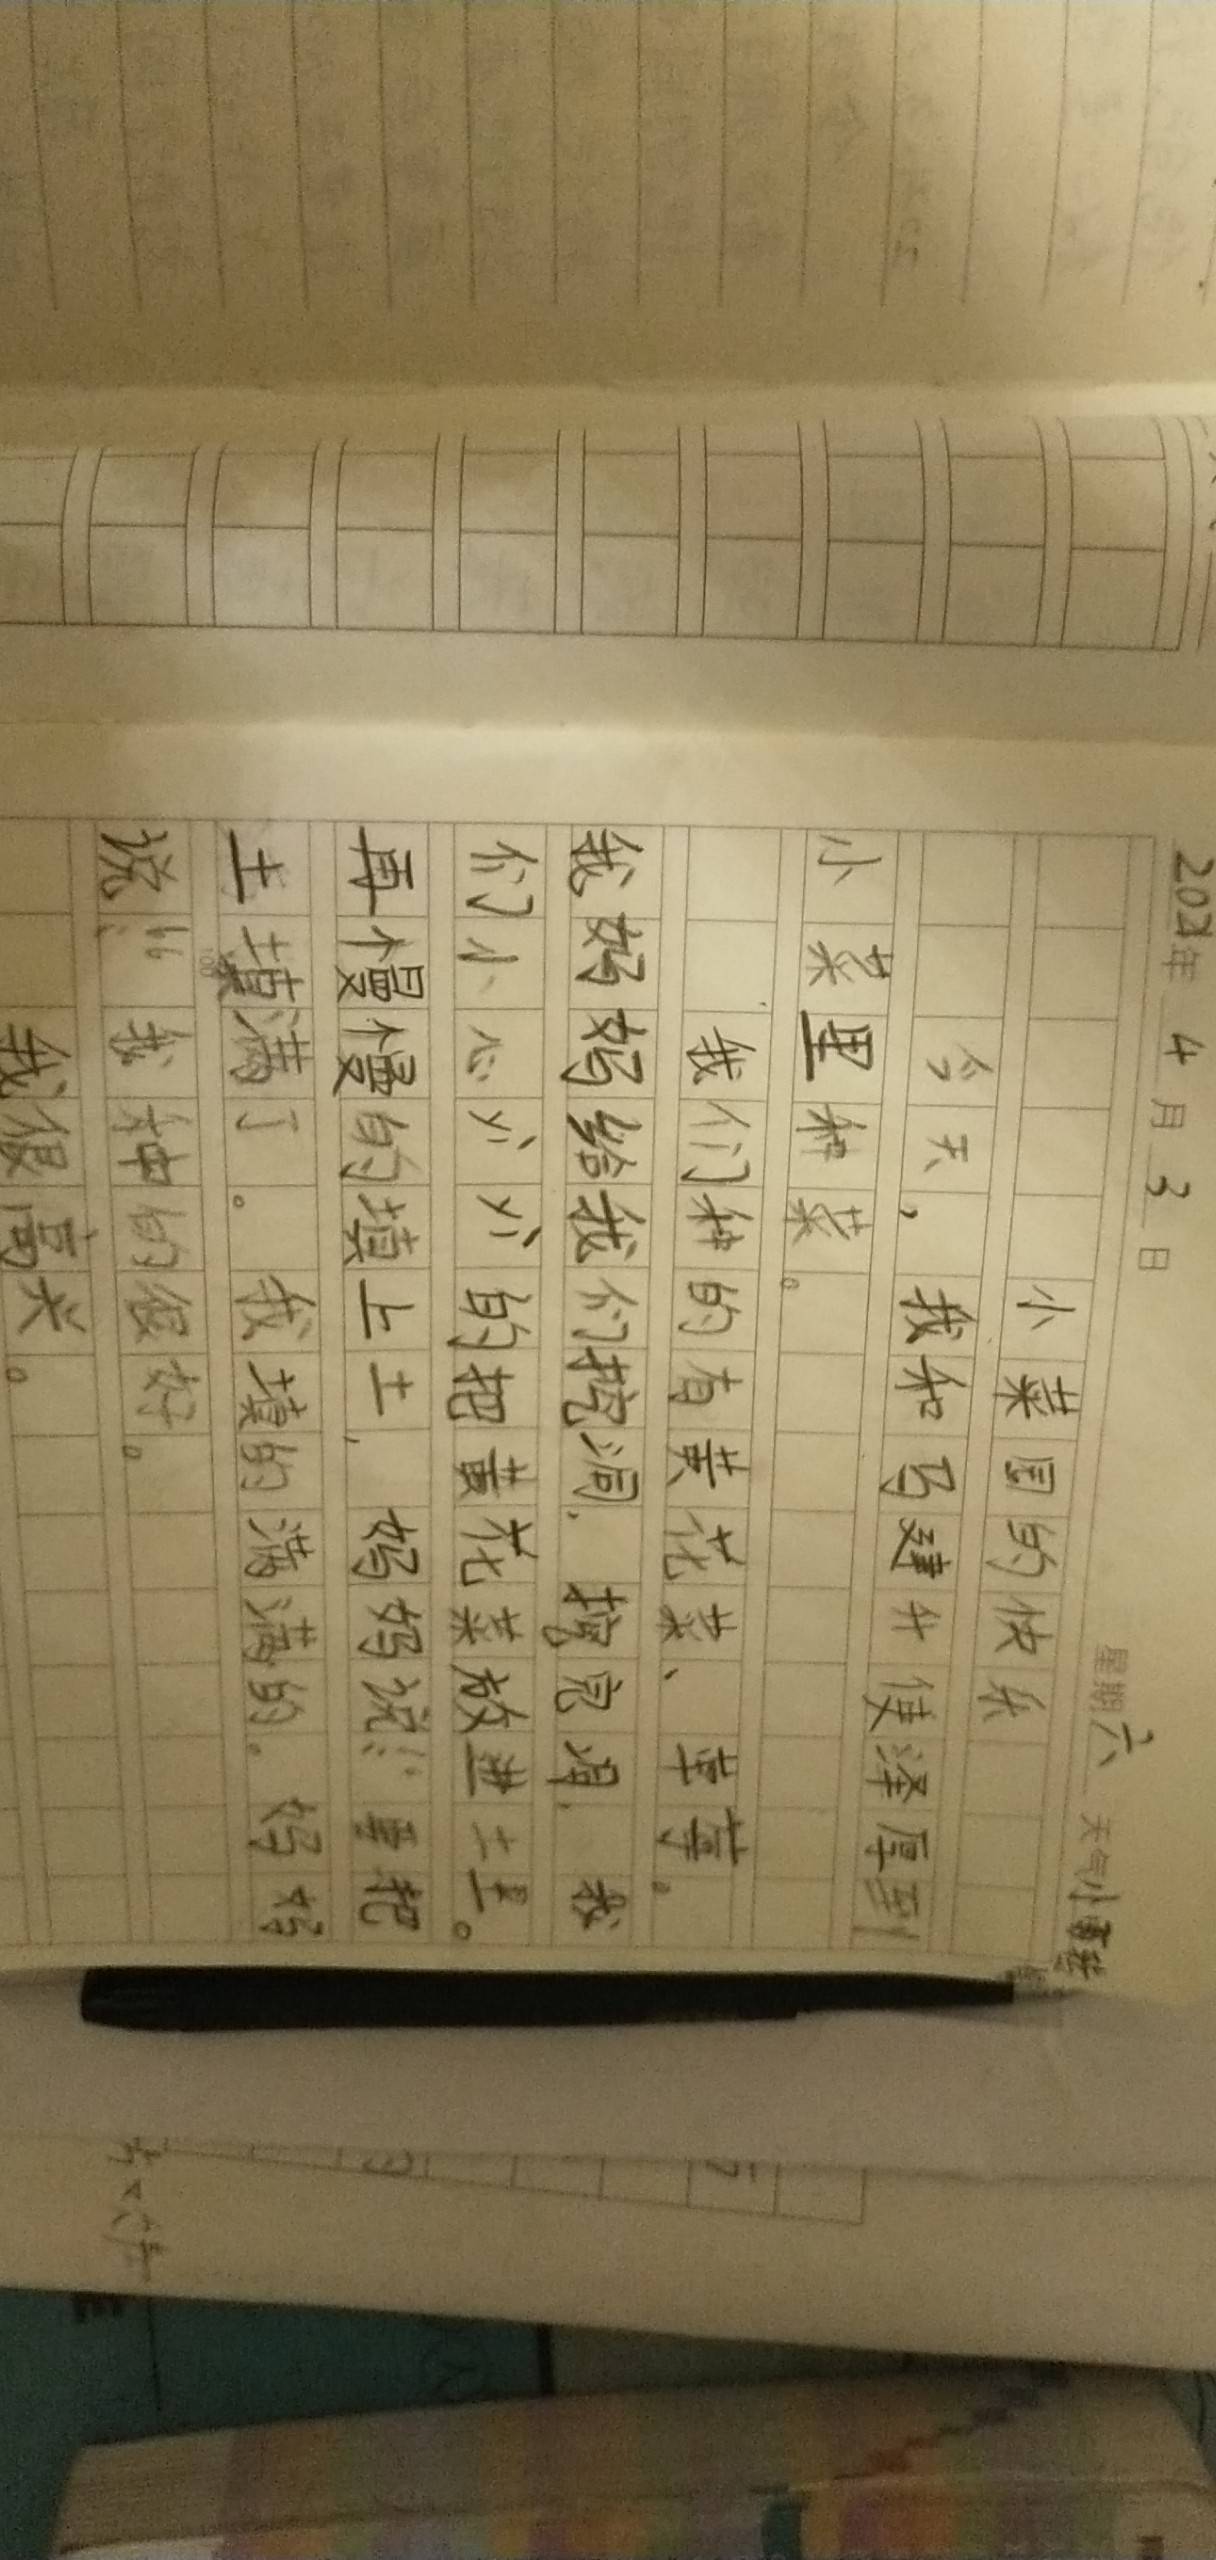 2021年 4月 3日 星期六 天气小雨转
小菜园的快乐
今天，我和马建升使泽厚到
小菜里种菜。
我们种的有黄花菜、草莓。
我妈妈给我们挖洞，挖完洞，我
们小心翼翼的把黄花菜放进土里。
再慢慢的填上土，妈妈说：要把
土填满了。我填的满满的。妈妈
说：“我种的很好。
我很高兴。